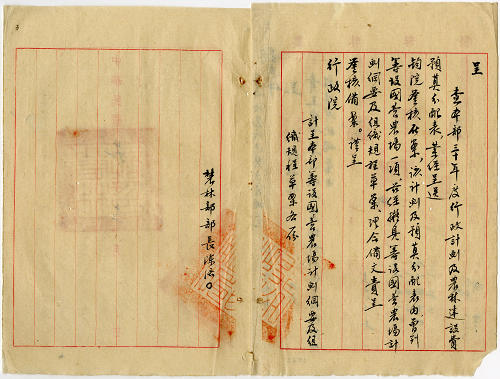 呈
查本部三十年度行政計劃及農林建設費
預算分配表,業經呈送
鈞院鑒核在案,該計劃及預算分配表內,曾列
籌設國營農場一項,茲經擬具籌設國營農場計
劃綱要及組織規程草案理合備文賫呈
鑒核備案。謹呈
行政院
計呈本部籌設國營農場計劃綱要及組
織規程草案各一份
農林部部長陳濟